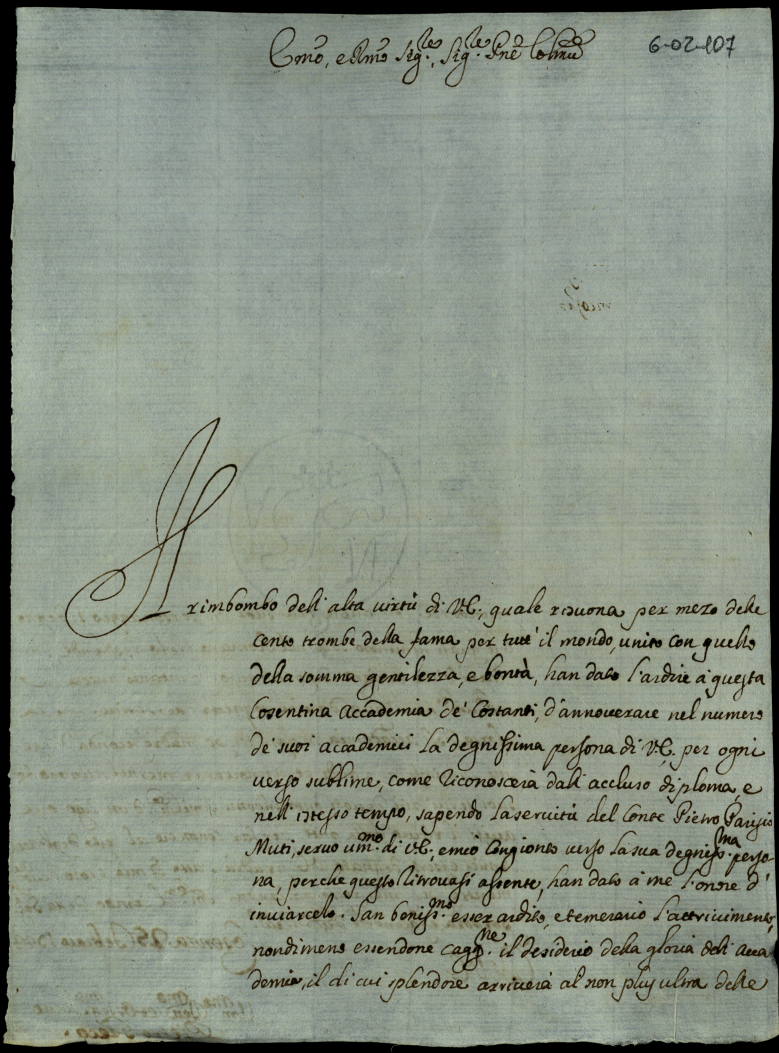 Emõ, e Rmõ Sig.re, Sig.re Pnẽ Colmõ
6-02-107
Il rimbombo dell'alta virtù di V.E., quale risuona per mezo delle
cento trombe della fama per tutt'il mondo, unito con quello
della somma gentilezza, e bontà, han dato l'ardire à questa
Cosentina Accademia de' Costanti, d'annoverare nel numero
de' suoi accademici la degnissima persona di V.E. per ogni
verso sublime, come riconoscerà dall'accluso diploma, e
nell'istesso tempo, sapendo la servitù del Conte Pietro Parisio
Muti, servo um.mo di V.E., e mio congionto verso la sua degniss.ma perso
na, perche questo ritrovasi assente, han dato à me l'onore d'
inviarcelo. San beniss.mo esser ardito, e temerario l'attrivimento,
nondimeno essendone cagg.ne il desiderio della gloria dell'Acca
demia, il di cui splendore arriverà al non plus ultra delle